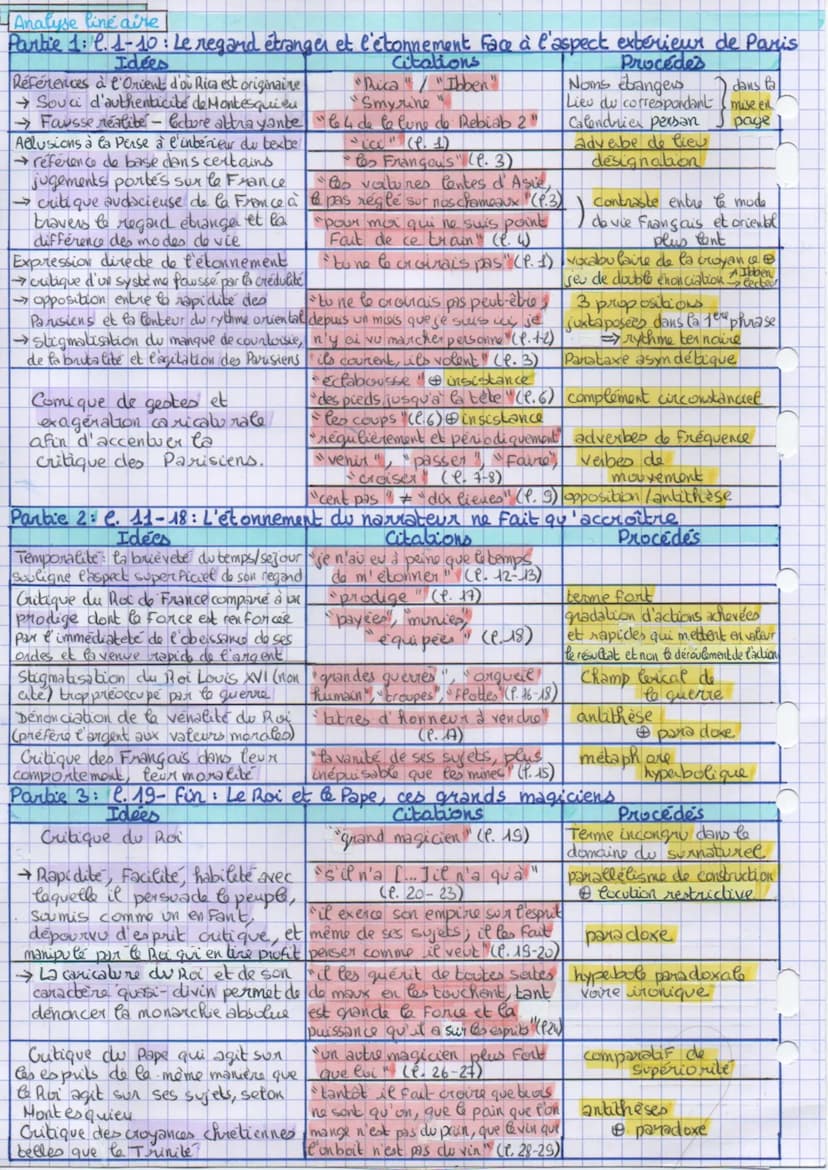 Analyse linéaire
Partie 1: l. 1-10 : Le regard étranger et l'étonnement face à l'aspect extérieur de Paris
Idées
Citations
Procédés
Références à l'Orient d'où Rica est originaire
→ Souci d'authenticité de Montesquieu
→ Fausse réalité - lecture attrayante
"Rica" / "Ibben"
"Smyrne"
"le 4 de la lune de Rebiab 2"
Noms étrangers
Lieu du correspondant
Calendrier persan
dans la
mise en
page
Allusions à la Perse à l'intérieur du texte
→ référence de base dans certains
jugements portés sur la France
→ critique audacieuse de la France à
travers le regard étranger et la
différence des modes de vie
"ici" (l. 1)
"les Français" (l. 3)
"les voitures lentes d'Asie,
le pas réglé sur nos chameaux" (l.3)
"pour moi qui ne suis point
fait de ce train" (l. 4)
adverbe de lieu
désignation
contraste entre le mode
de vie Français et oriental
plus lent
Expression directe de l'étonnement
→ critique d'un système faussé par la crédulité
→ opposition entre la rapidité des
Parisiens et la lenteur du rythme oriental
→ stigmatisation du manque de courtoisie,
de la brutalité et l'agitation des Parisiens
"tu ne le croirais pas" (l. 1)
"tu ne le croirais pas peut-être,
depuis un mois que je suis ici, je
n'y ai vu marcher personne" (l.1-2)
"ils courent, ils volent" (l. 3)
vocabulaire de la croyance ⊕
jeu de double énonciation ↗ Ibben
→ lecteur
3 propositions
juxtaposées dans la 1ère phrase
⇒ rythme ternaire
Parataxe asyndétique
Comique de gestes et
exagération caricaturale
afin d'accentuer la
critique des Parisiens.
"éclabousse" ⊕ insistance
"des pieds jusqu'à la tête" (l.6)
"les coups" (l.6) ⊕ insistance
"régulièrement et périodiquement"
"venir", "passer", "faire",
"croiser" (l. 7-8)
"cent pas" ≠ "dix lieues" (l. 9)
complément circonstanciel
adverbes de fréquence
verbes de
mouvement
opposition / antithèse
Partie 2: l. 11-18 : L'étonnement du narrateur ne fait qu'accroître
Idées
Citations
Procédés
Temporalité : la brièveté du temps/séjour
souligne l'aspect superficiel de son regard
"je n'ai eu à peine que le temps
de m'étonner" (l. 12-13)
Critique du Roi de France comparé à un
prodige dont la force est renforcée
par l'immédiateté de l'obéissance de ses
ordres et la venue rapide de l'argent
"prodige" (l. 17)
"payées", "munies",
"équipées" (l.18)
terme fort
gradation d'actions achevées
et rapides qui mettent en valeur
le résultat et non le déroulement de l'action
Stigmatisation du Roi Louis XVI (non
cité) trop préoccupé par la guerre
"grandes guerres", "orgueil
humain", "troupes", "flottes" (l. 16-18)
Champ lexical de
la guerre
Dénonciation de la vénalité du Roi
(préfère l'argent aux valeurs morales)
"titres d'honneur à vendre"
(l. 17)
antithèse
⊕ paradoxe
Critique des Français dans leur
comportement, leur moralité
"la vanité de ses sujets, plus
inépuisable que les mines" (l. 15)
métaphore
hyperbolique
Partie 3: l. 19- fin : Le Roi et le Pape, ces grands magiciens
Idées
Citations
Procédés
Critique du Roi
"grand magicien" (l. 19)
Terme incongru dans le
domaine du surnaturel
→ Rapidité, facilité, habilité avec
laquelle il persuade le peuple,
soumis comme un enfant,
dépourvu d'esprit critique, et
manipulé par le Roi qui en tire profit
"s'il n'a [...] il n'a qu'à"
(l. 20-23)
"il exerce son empire sur l'esprit
même de ses sujets; il les fait
penser comme il veut" (l. 19-20)
parallélisme de construction
⊕ locution restrictive
paradoxe
→ La caricature du Roi et de son
caractère quasi-divin permet de
dénoncer la monarchie absolue
"il les guérit de toutes sortes
de maux en les touchant, tant
est grande la force et la
puissance qu'il a sur les esprits" (l.24)
hyperbole paradoxale
voire ironique
Critique du Pape qui agit sur
les esprits de la même manière que
le Roi agit sur ses sujets, selon
Montesquieu
Critique des croyances chrétiennes
telles que la Trinité
"un autre magicien plus fort
que lui" (l. 26-27)
"tantôt il fait croire que trois
ne sont qu'un, que le pain que l'on
mange n'est pas du pain, que le vin que
l'on boit n'est pas du vin" (l. 28-29)
comparatif de
supériorité
antithèses
⊕ paradoxe